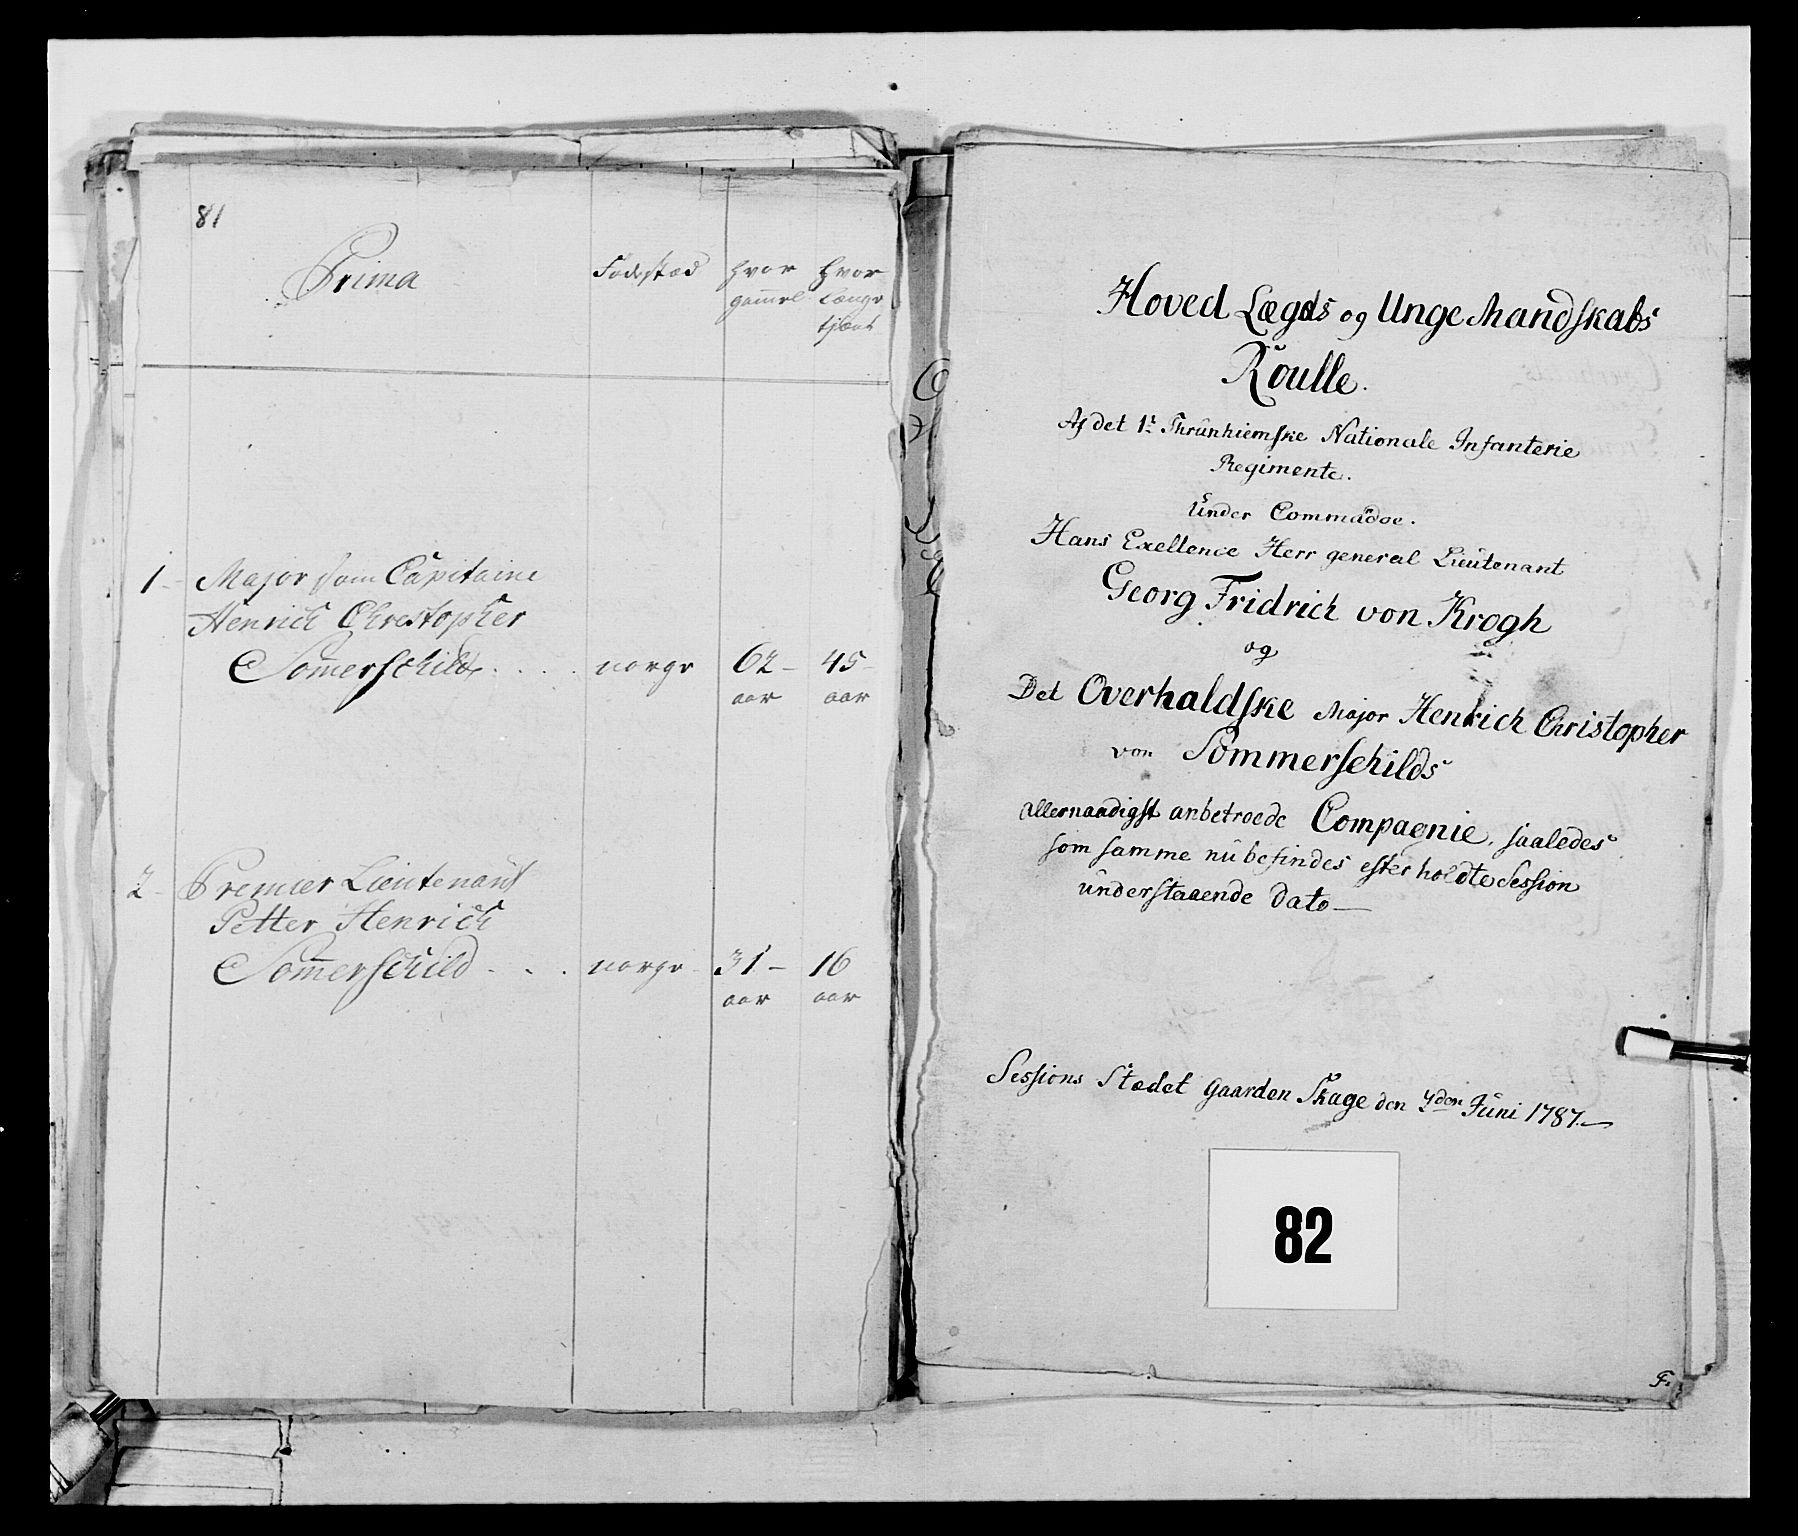 81
Prima
Fødestæd
hvor gammel
hvor længe tjent
1 - Major som Capitaine
Henrich Chrestopher
Sommerschild . . . . norge 62 - 45 -
aar aar
2 - Premier Lieutenant
Petter Henrich
Sommerschild . . . norge 31 - 16
aar aar
Hoved Lægds og Unge Mandskabs
Roulle.
Af det 1t Thrünhiemske Nationale Infanterie
Regimente.
Under Commadoe.
Hans Exellence Herr general Lieutenant
Georg Fridrich von Krogh
og
Det Overhaldske Major Henrich Christopher
von Sommerschilds
allernaadigst anbetroede Compagnie, saaledes
som samme nü befindes efter holdte Session
ünderstaaende Dato —
Sessions Stædet Gaarden Skage den 7den Jüni 1787. —
82
F.